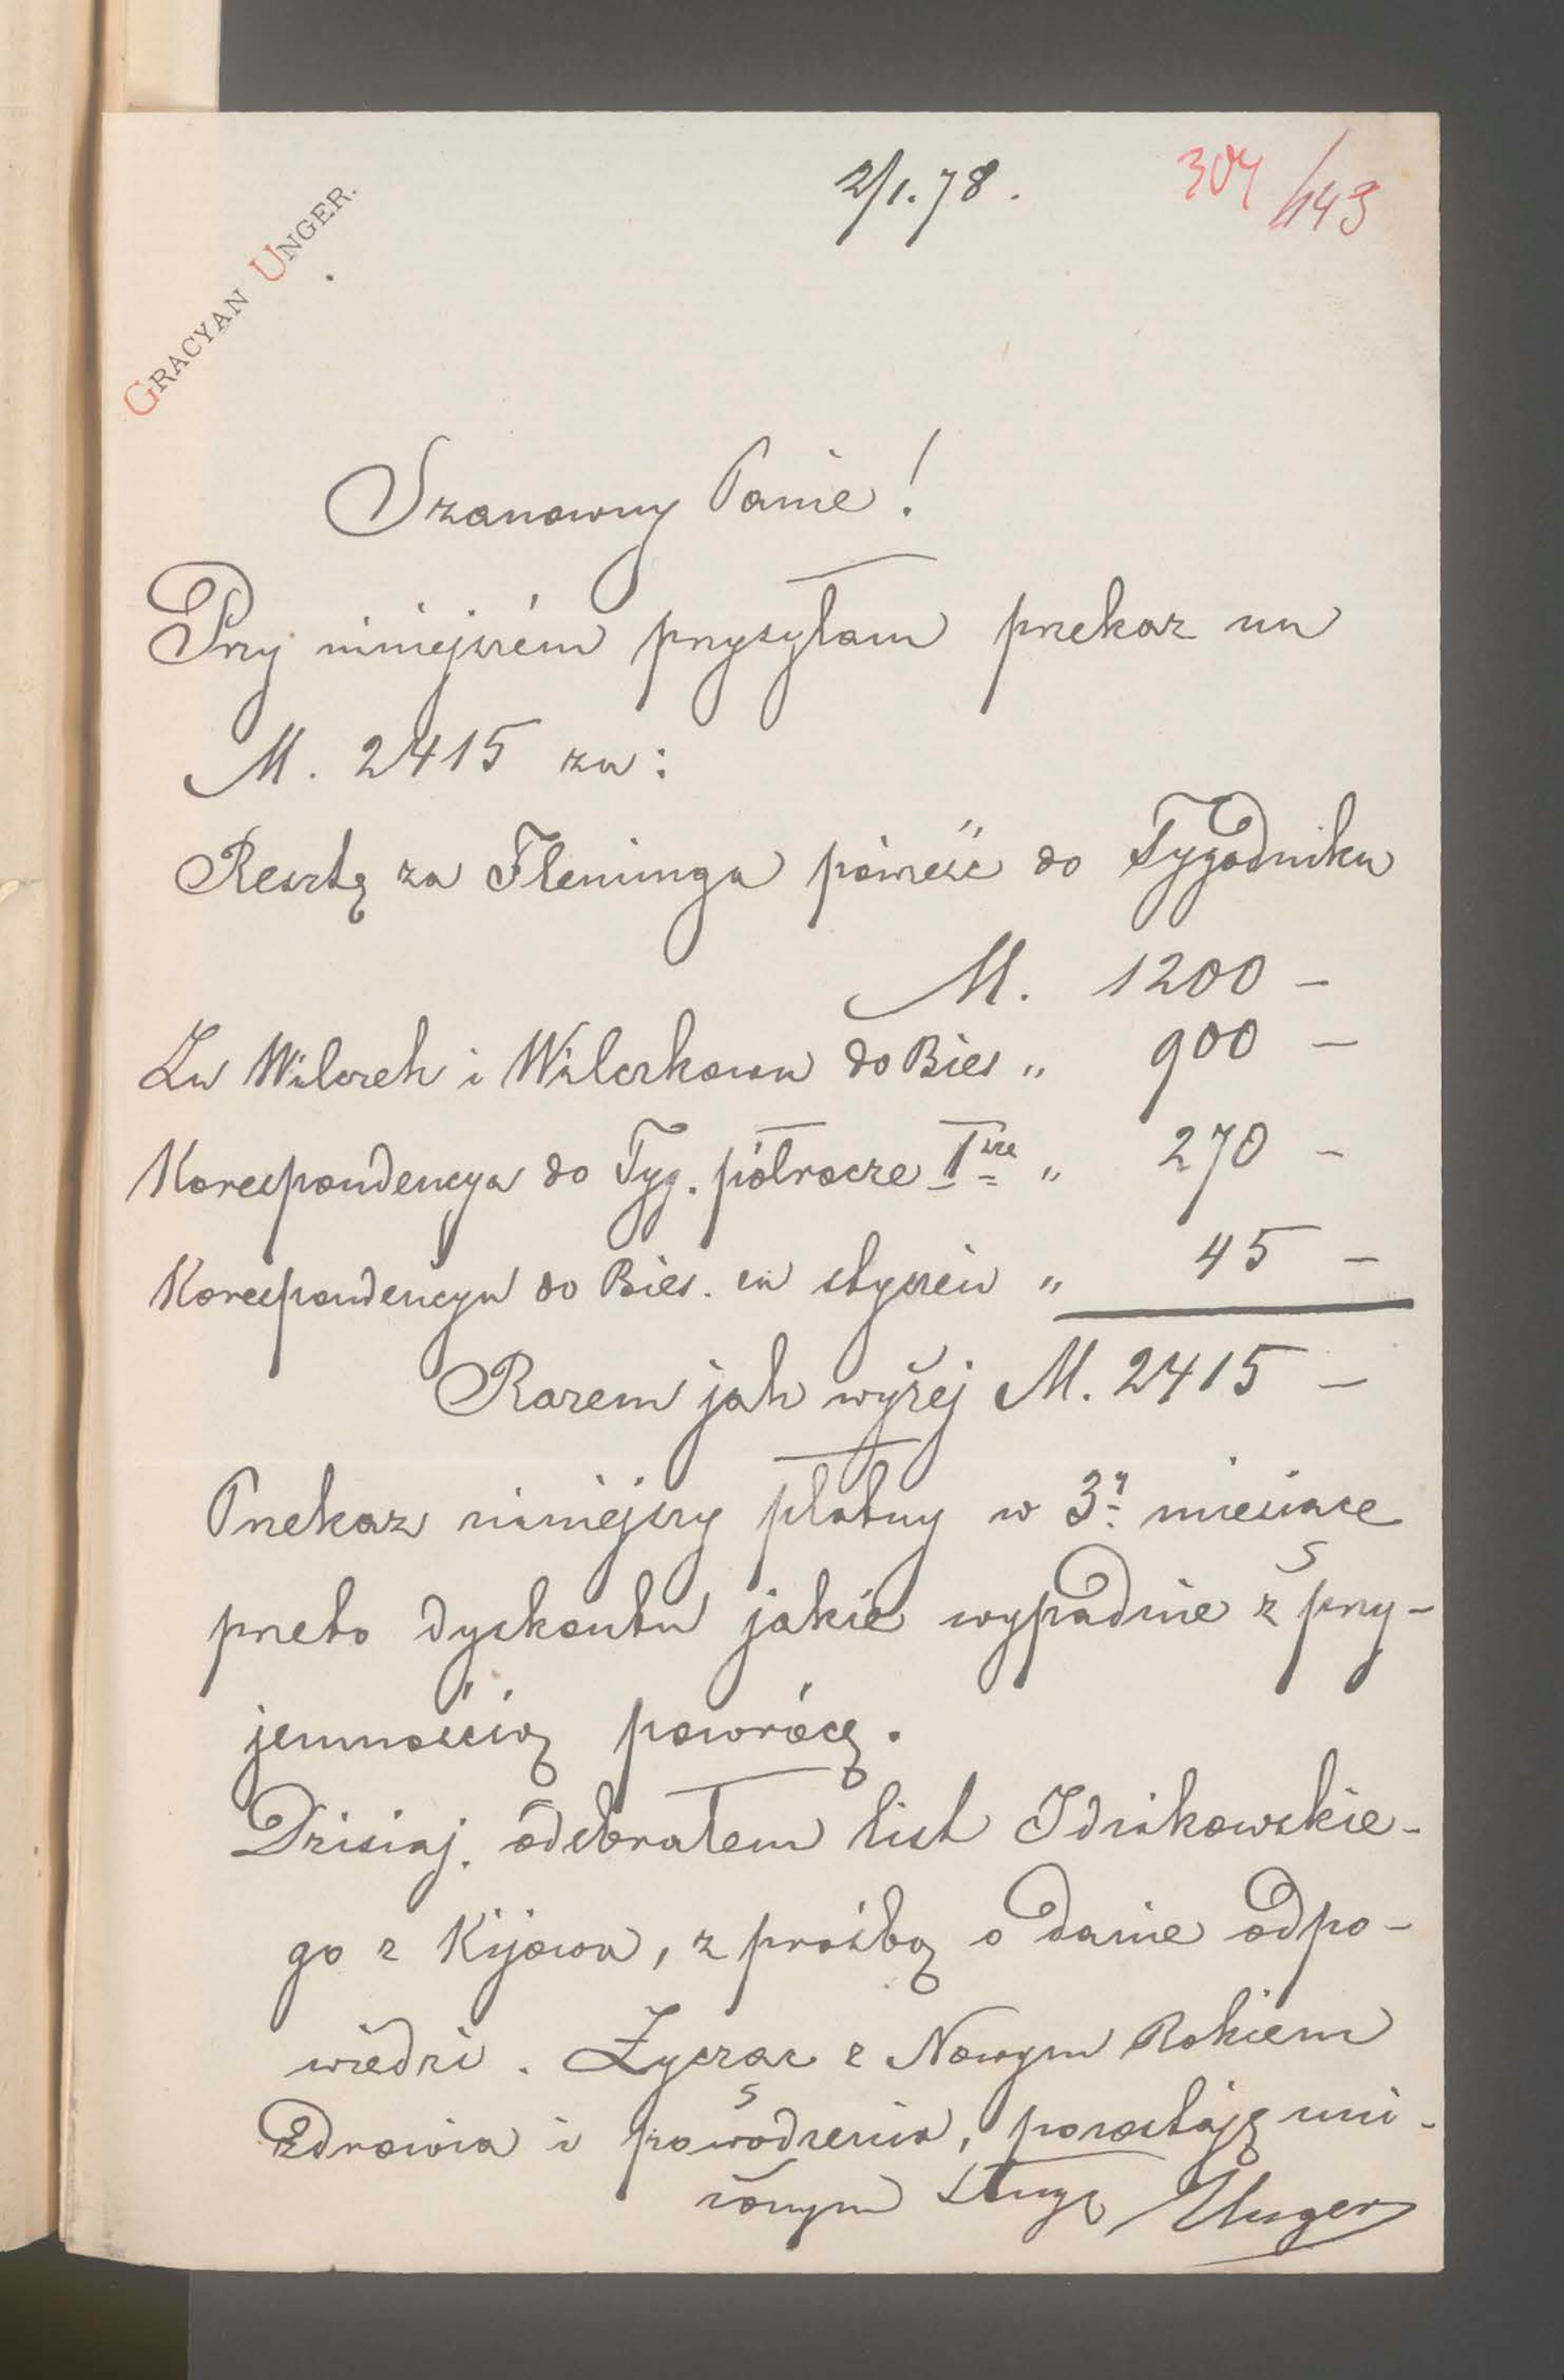 2/1.78.
304 /143
GRACYAN UNGER.
Szanowny Panie!
Przy niniejszém przysyłam przekaz na
M. 2415 za:
Resztę za Fleminga powieść do Tygodnika
M. 1200 —
Za Wilczek i Wilczkowa do Bies „ 900 —
Korespondencya do Tyg. półrocze Isze „ 270 —
Korespondencya do Bies. za styczeń „ 45 —
Razem jak wyżej M. 2415 —
Przekaz niniejszy płatny w 3y miesiące
przeto dyskonto jakie wypadnie z przy-
jemnością powrócę.
Dzisiaj odebrałem list Idzikowskie-
go z Kijowa, z prośbą o danie odpo-
wiedzi. Życząc z Nowym Rokiem
zdrowia i powodzenia, pozostaję uni-
żonym sługą Unger